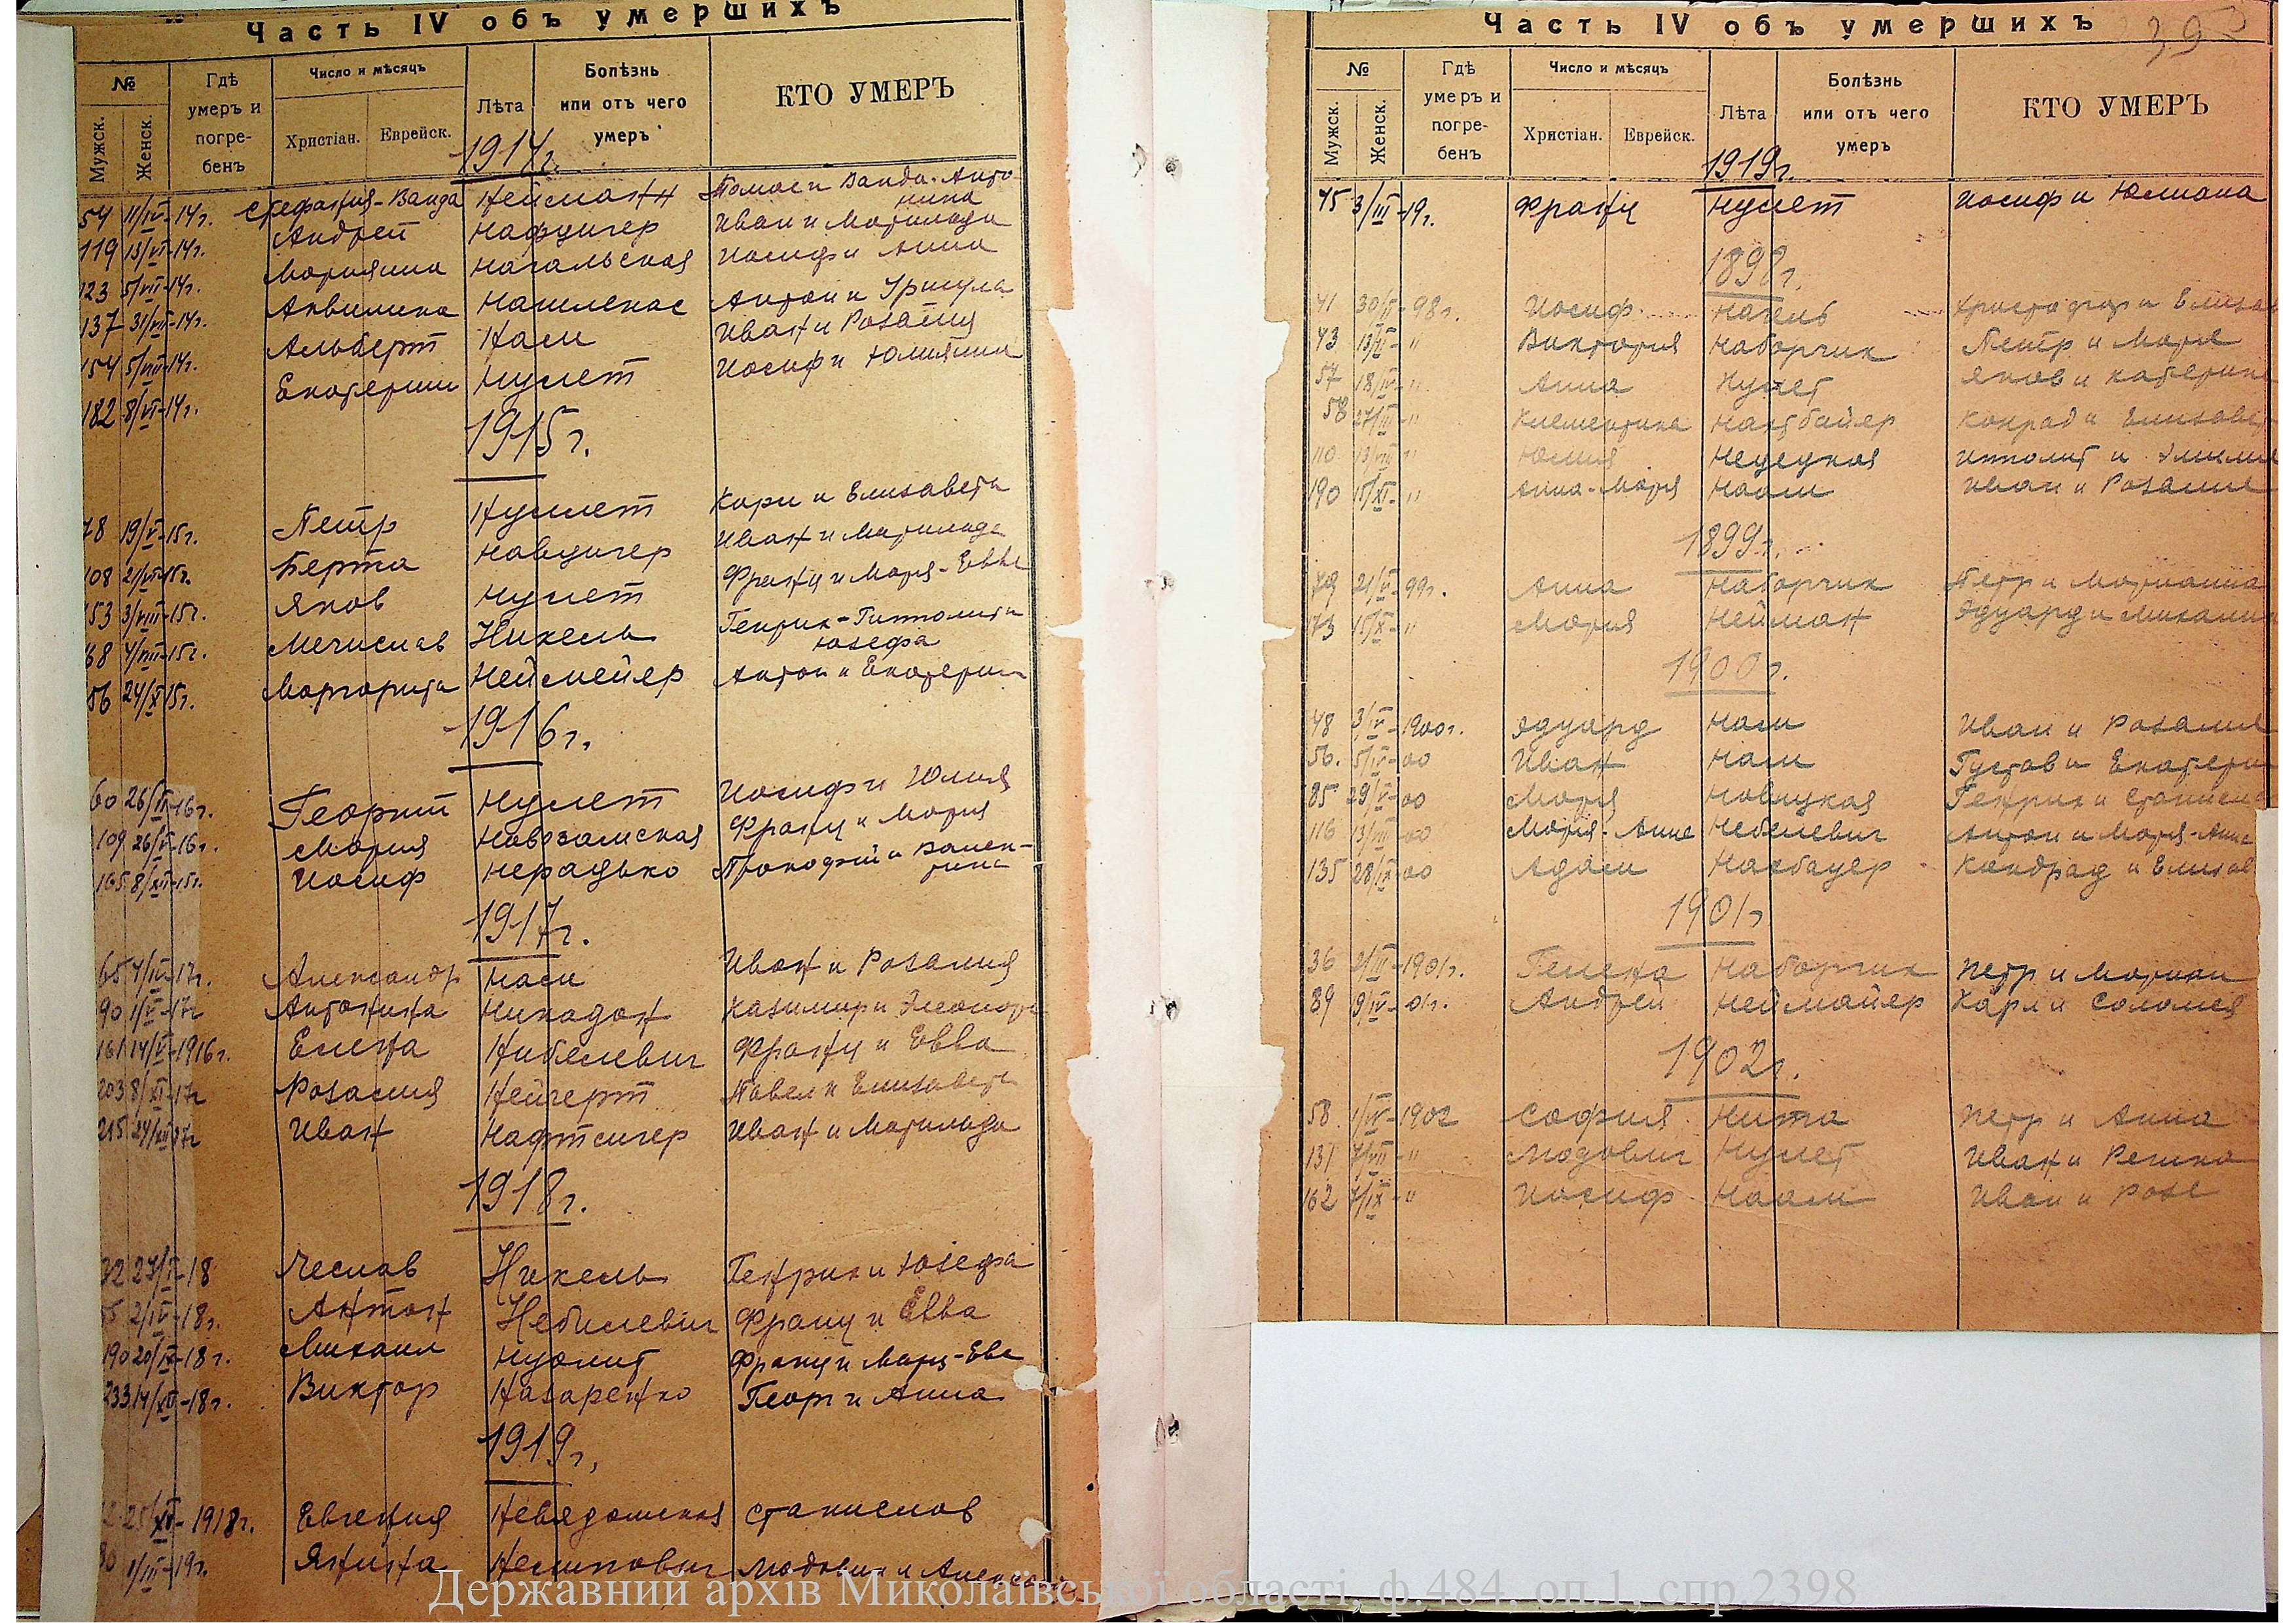 Часть IV объ умершихъ
№
Мужск.
Женск.
Гдѣ умеръ и погребенъ
Число и мѣсяцъ
Христіан.
Еврейск.
Лѣта
Болѣзнь или отъ чего умеръ
КТО УМЕРЪ
1914г.
54 11/IV-14г. Стефания-Ванда Нейман
Ванда-Антонина
119 13/VI-14г. Андрей Нафцигер Иван и Матильда
123 5/VII-14г. Марианна Нагальская Иосиф и Анна
137 31/VII-14г. Аквилина Нашленас Антон и Урсула
154 5/VIII-14г. Альберт Нам Иван и Розалия
182 8/VI-14г. Екатерина Нуллет Иосиф и Юлианна
1915г.
78 19/V-15г. Петр Нуллет Карл и Елизавета
108 21/VI-15г. Берта Навцигер Иван и Матильда
153 3/VIII-15г. Яков Нуллет Франц и Мария-Евва
168 4/VIII-15г. Мечислав Никель Генрик-Гипполит и Юзефа
56 24/X-15г. Маргарита Неймейер Антон и Екатерина
1916г.
60 26/II-16г. Георгий Нуллет Иосиф и Юлия
109 26/V-16г. Мария Франц и Мария
165 8/XII-15г. Иосиф Нерадько Прокофий и Валентина
1917г.
65 4/IV-17г. Александр Нам Иван и Розалия
90 1/V-17г Антонина Никадон Казимир и Элеонора
161 14/V-1916г. Елена Нибелевич Франц и Евва
203 8/XI-17г Розалия Нейгерт Павел и Елизавета
215 24/XII-17г Иван Нафтсигер Иван и Матильда
1918г.
27/I-18 Чеслав Никель Генрик и Юзефа
2/IV-18г. Антон Небилевич Франц и Евва
190 20/IX-18г. Михаил Франц и Мария-Ева
233 14/XII-18г. Виктор Назаренко Георг и Анна
1919г.
25/XI-1918г. Евгения Неведомская Станислав
1/III-19г. Янина Людовик и
Часть IV объ умершихъ
№
Мужск.
Женск.
Гдѣ умеръ и погребенъ
Число и мѣсяцъ
Христіан.
Еврейск.
Лѣта
Болѣзнь или отъ чего умеръ
КТО УМЕРЪ
1919г.
45 3/III-19г. Франц Нуллет Иосиф и Юлиана
1898г.
41 30/V-98г. Иосиф Нагель
43 Виктория Наборчик Петр и Мария
57 Анна Нуллет Яков и Катерина
58 Клементина Нахтбайер Конрад и
110 Юлия Недецкая Ипполит и
190 15/XI-" Анна-Мария Наам Иван и Розалия
1899г.
21/V-99г. Анна Наборчик Петр и Марианна
73 15/X-" Мария Нейман Эдуард и
1900г.
48 3/IV-1900г. Эдуард Нам Иван и Розалия
56. 5/IV-00 Иван Нам Густав и
85 29/V-00 Мария Новицкая Генрик и
116 13/VII-00 Мария-Анна Небелевич Антон и Мария-Анна
135 28/IX-00 Адам Нахбауер Кондрад и
1901г
36 2/III-1901г. Гелена Наборчик Петр и
89 9/IV-01г. Андрей Неймайер Карл и Саломея
1902г.
58. 1/IV-1902 София Нита Петр и Анна
131 7/VII-" Людовиг Нуллет Иван и
162 7/IX-" Иосиф Наам Иван и
Державний архів Миколаївської області, ф.484, оп.1, спр.2398